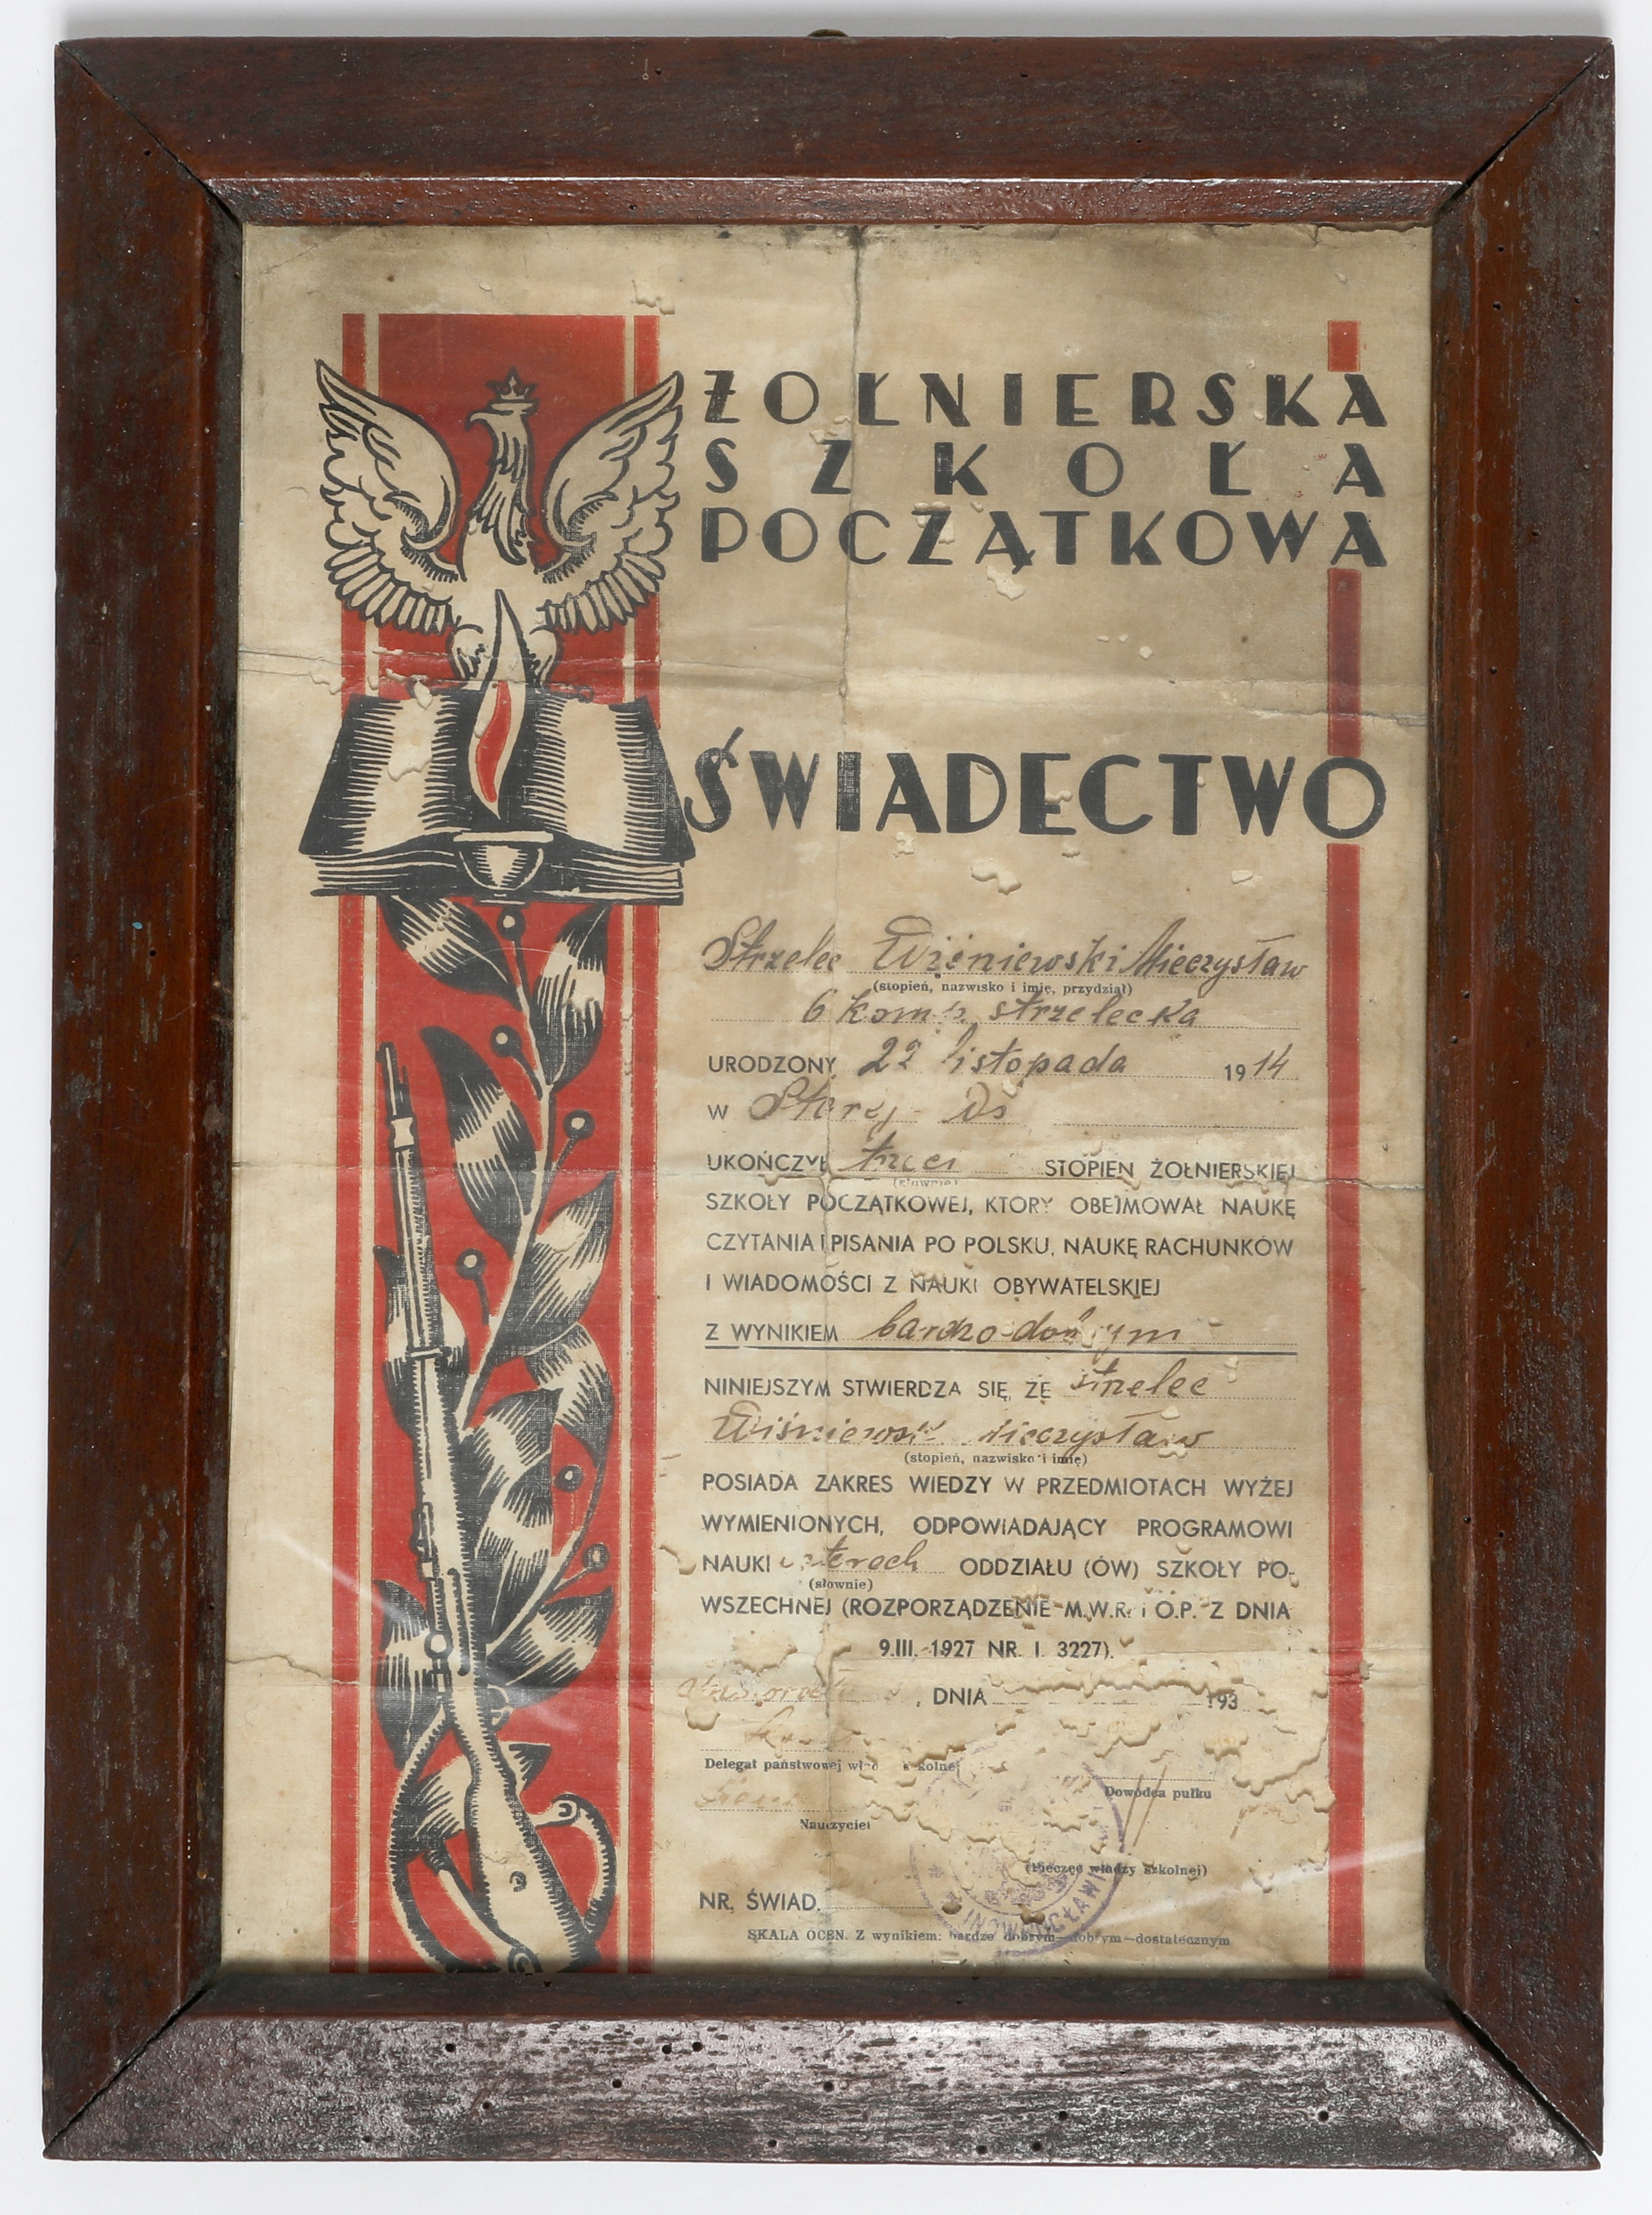 ŻOŁNIERSKA
SZKOŁA
POCZĄTKOWA
ŚWIADECTWO
Strzelec Wiśniewski Mieczysław
(stopień, nazwisko i imię, przydział)
6 komp. strzelecka
URODZONY 22 listopada 1914
W
UKOŃCZYŁ trzeci STOPIEŃ ŻOŁNIERSKIEJ
(słownie)
SZKOŁY POCZĄTKOWEJ, KTÓRY OBEJMOWAŁ NAUKĘ
CZYTANIA I PISANIA PO POLSKU, NAUKĘ RACHUNKÓW
I WIADOMOŚCI Z NAUKI OBYWATELSKIEJ
Z WYNIKIEM bardzo dobrym
NINIEJSZYM STWIERDZA SIĘ, ŻE strzelec
Wiśniewski Mieczysław
(stopień, nazwisko i imię)
POSIADA ZAKRES WIEDZY W PRZEDMIOTACH WYŻEJ
WYMIENIONYCH, ODPOWIADAJĄCY PROGRAMOWI
NAUKI czterech ODDZIAŁU (ÓW) SZKOŁY PO-
(słownie)
WSZECHNEJ (ROZPORZĄDZENIE M.W.R. i O.P. Z DNIA
9.III. 1927 NR. I. 3227).
, DNIA 193
Delegat państwowej władzy szkolnej
Dowódca pułku
Nauczyciel
(Pieczęć władzy szkolnej)
INOWROCŁAWIU
NR. ŚWIAD.
SKALA OCEN. Z wynikiem: bardzo dobrym—dobrym—dostatecznym